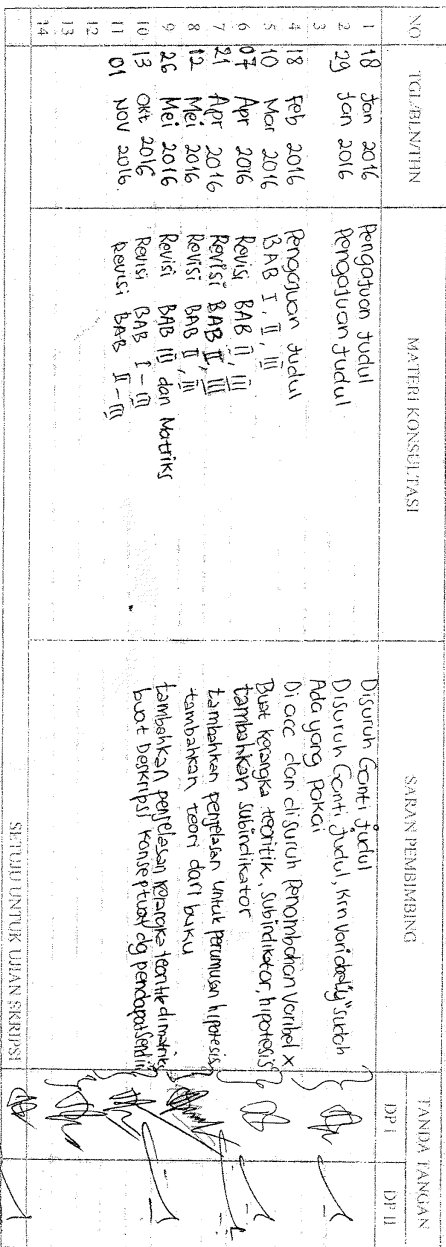 NO TGL/BLN/THN MATERI KONSULTASI SARAN PEMBIMBING TANDA TANGAN
DP I DP II
1 18 Jan 2016 Pengajuan Judul Disuruh Ganti judul
2 29 Jan 2016 Pengajuan Judul Disuruh Ganti judul, krn Variabel "y" sudah
3 Ada yang Pakai
4 18 Feb 2016 Pengajuan Judul Di acc dan disuruh Penambahan Varibel x
5 10 Mar 2016 BAB I, II, III Buat kerangka teoritik, subindikator, hipotesis
6 07 Apr 2016 Revisi BAB II, III tambahkan subindikator
7 21 Apr 2016 Revisi BAB II, III tambahkan penjelasan untuk perumusan hipotesis
8 12 Mei 2016 Revisi BAB II, III tambahkan teori dari buku
9 26 Mei 2016 Revisi BAB III dan Matriks tambahkan penjelasan kerangka teoritik di matriks
10 13 Okt 2016 Revisi BAB I - III buat Deskripsi Konseptual dg pendapat sendiri
11 01 Nov 2016. Revisi BAB II - III
12
13
14
SETUJU UNTUK UJIAN SKRIPSI